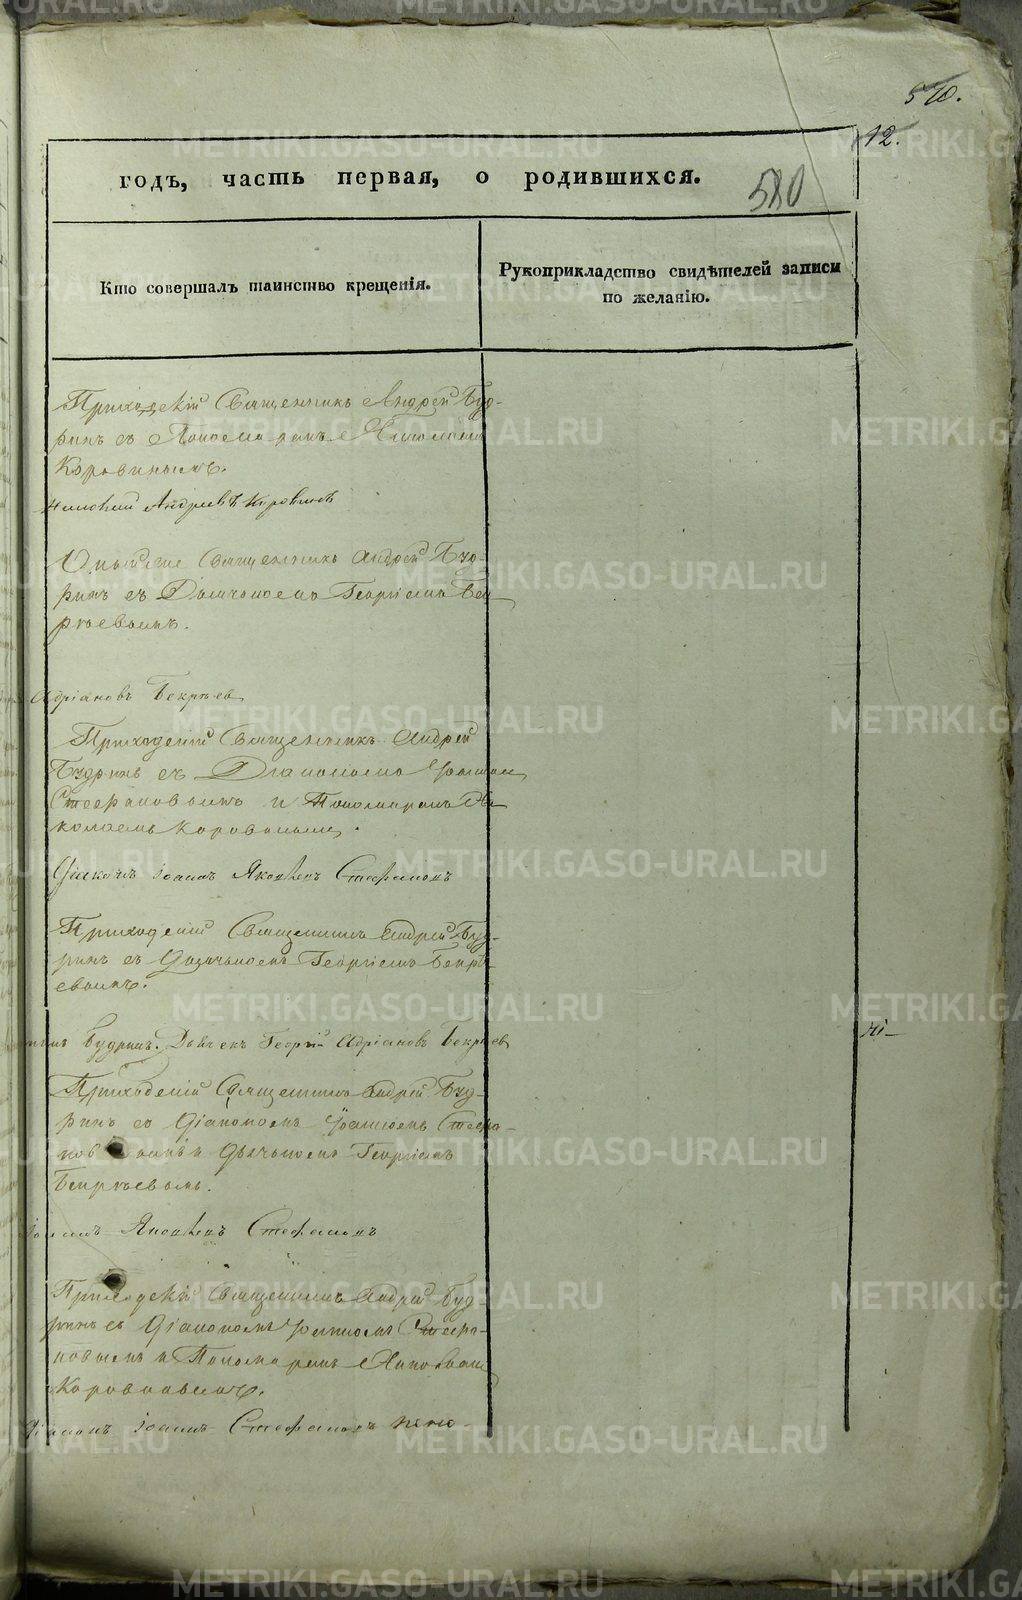 570.
12.
годъ, часть первая, о родившихся.
580
Кто совершалъ таинство крещенія.
Рукоприкладство свидѣтелей записи
по желанію.
Приходскій Священникъ Андрей Буд-
ринъ съ Пономаремъ Николаемъ
Коровинымъ.
Николай Андреевъ Коровинъ
Священникъ Андрей Буд-
ринъ съ Дьячкомъ Георгіемъ Бек
рѣевымъ.
Адріановъ Бекрѣев
Приходскій Священникъ Андрей
Будринъ съ Діакономъ Іоанном
Стефановымъ и Пономаремъ Ни
колаемъ Коровиным.
Діаконъ Іоаннъ Яковлевъ Стефановъ
Приходскій Священникъ Андрей Буд-
ринъ съ Дьячкомъ Георгіемъ Бекрѣ-
евымъ.
Будринъ. Дьячекъ Георгій Адріановъ Бекрѣев
Приходскій Священникъ Андрей Буд-
ринъ съ Діакономъ Іоанномъ Стефа-
новымъ и Дьячкомъ Георгіемъ
Бекрѣевымъ.
Іоаннъ Яковлевъ Стефановъ
Приходскій Священникъ Андрей Буд
ринъ съ Діакономъ Іоанномъ Стефа-
новымъ и Пономаремъ Николаем
Коровинымъ.
Діаконъ Іоаннъ Стефановъ
METRIKI.GASO-URAL.RU